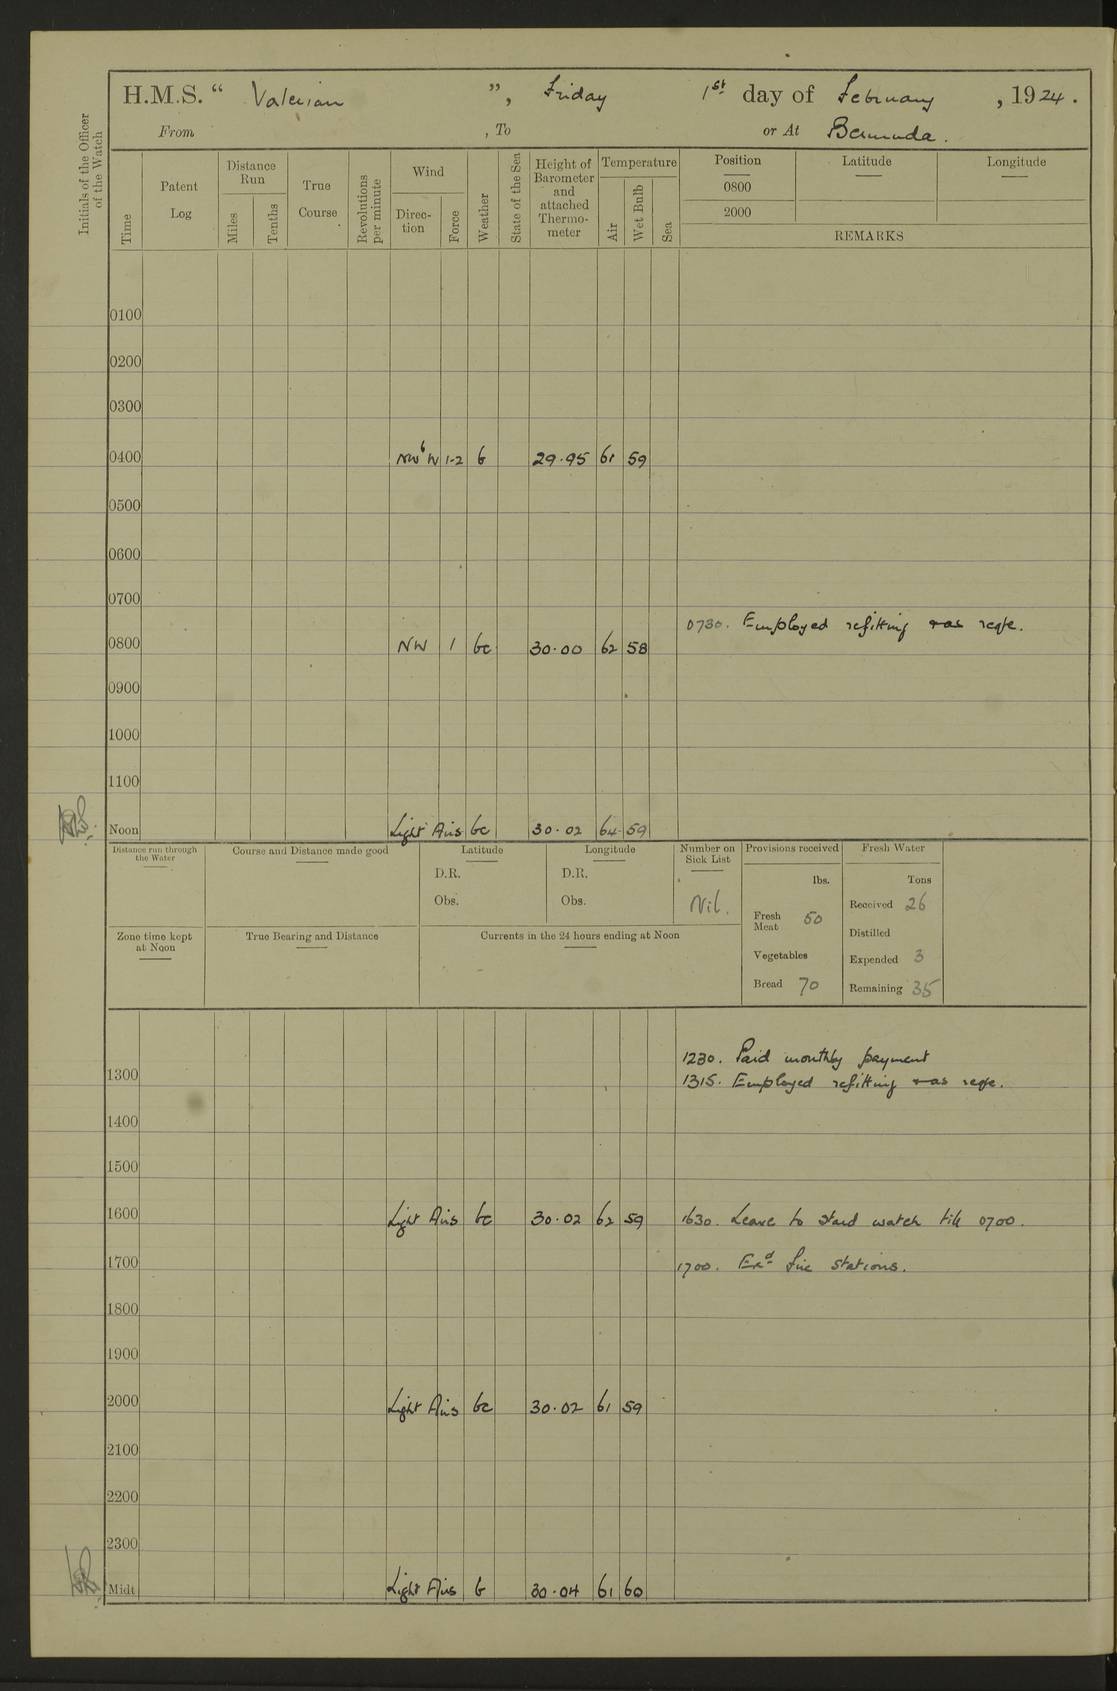 H.M.S. “ Valerian ”, Friday 1st day of February, 1924.
From , To or At Bermuda.
Initials of the Officer of the Watch
Time
Patent Log
Distance Run
Miles
Tenths
True Course
Revolutions per minute
Wind
Direction
Force
Weather
State of the Sea
Height of Barometer and attached Thermometer
Temperature
Air
Wet Bulb
Sea
Position
0800
2000
Latitude
Longitude
REMARKS
0100
0200
0300
0400 NWbW 1-2 b 29.95 61 59
0500
0600
0700
0730. Employed refitting &as reqte.
0800 NW 1 bc 30.00 62 58
0900
1000
1100
Noon Light Airs bc 30.02 64 59
Distance run through the Water
Course and Distance made good
Latitude
D.R.
Obs.
Longitude
D.R.
Obs.
Number on Sick List
Nil.
Provisions received
lbs.
Fresh Meat 50
Vegetables
Bread 70
Fresh Water
Tons
Received 26
Distilled
Expended 3
Remaining 35
Zone time kept at Noon
True Bearing and Distance
Currents in the 24 hours ending at Noon
1230. Paid monthly payment
1300
1315. Employed refitting &as reqe.
1400
1500
1600 Light Airs bc 30.02 62 59
1630. Leave to stard watch till 0700.
1700
1700. Exd fire stations.
1800
1900
2000 Light Airs bc 30.02 61 59
2100
2200
2300
Midt Light Airs b 30.04 61 60